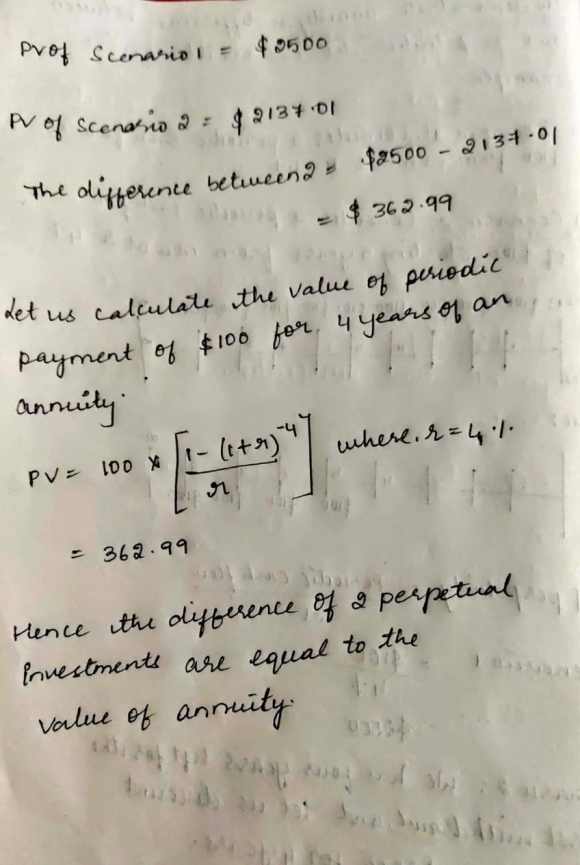 PV of Scenario 1 = $2500
PV of Scenario 2 = $2137.01
The difference between 2 = $2500 - 2137.01
= $362.99
Let us calculate the value of periodic
payment of $100 for 4 years of an
annuity.
PV = 100 × [1-(1+r)^-4 / r] where, r = 4%.
= 362.99
Hence the difference of 2 perpetual
investments are equal to the
value of annuity.